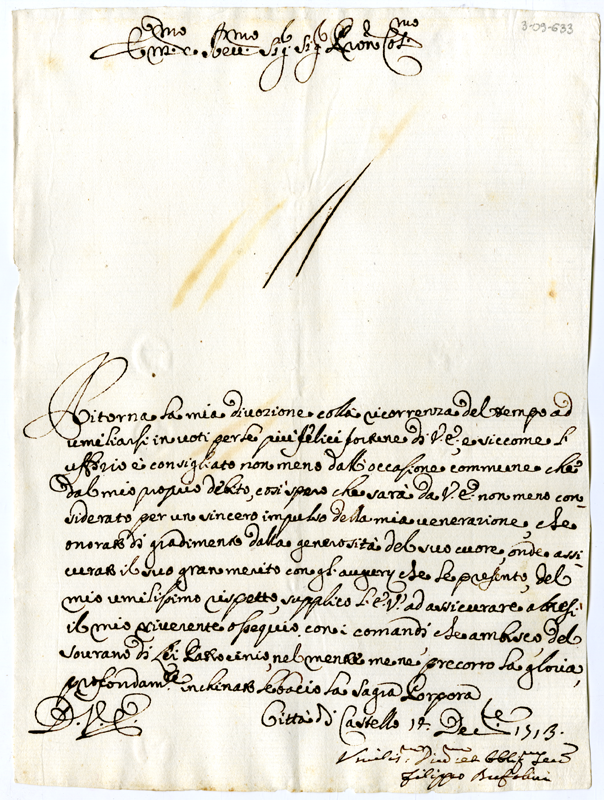 3-09-633
Em.mo e Rev.mo Sig.r Sig.r Pron Col.mo
Ritorna la mia divozione colla ricorrenza del tempo ad
umiliarsi in voti per le piu felici fortune di V.E., e siccome l'
uffizio è consigliato non meno dall'occasione commune che
dal mio propio debito, così spero che sarà da V.E. non meno con-
siderato per un sincero impulso della mia venerazione, che
onorato di gradimento dalla generosità del suo cuore, onde assi-
curato il suo gran merito con gl'augurij che le presento, del
mio umilissimo rispetto, supplico l'E.V. ad assicurare altresi
il mio riverente ossequio con i comandi che ambisco del
sovrano di Lei Patrocinio nel mentre me ne precorro la gloria,
profondam.te inchinato le bacio la sagra Porpora
D.V.E.
Città di Castello 14 Dec.bre 1713.
Umilis.mo Div.mo et Obblig.mo Ser.re
Filippo Bufalini